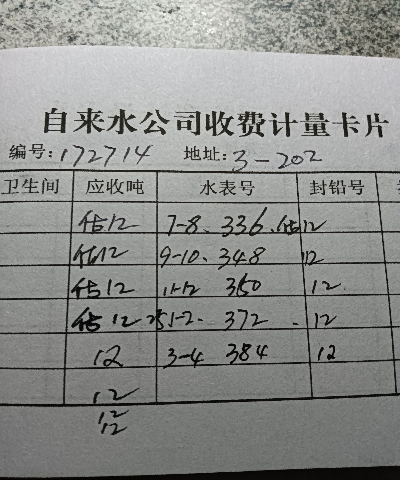 自来水公司收费计量卡片
编号: 172714 地址: 3-202
卫生间 应收吨 水表号 封铅号
估12 7-8. 336. 估12
估12 9-10. 348 12
估12 11-12 350 12.
估12 251-2. 372 . 12
12 3-4 384 12
12
12
12